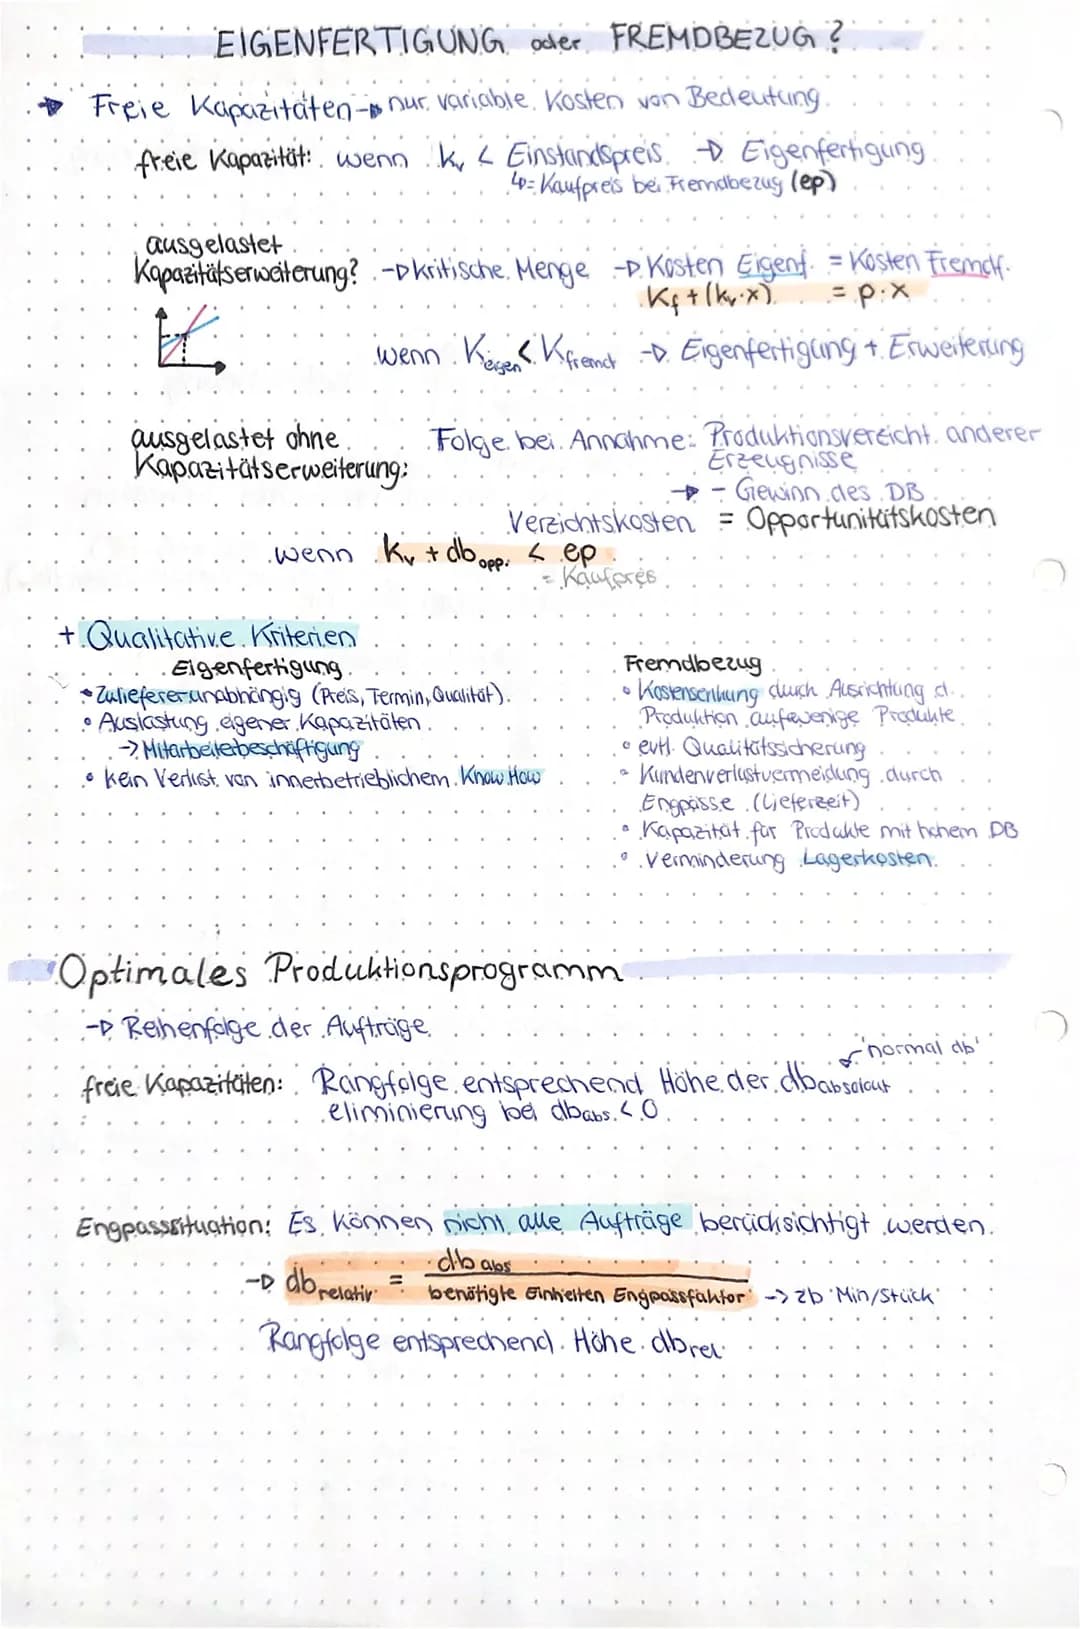 EIGENFERTIGUNG oder FREMDBEZUG?
→ Freie Kapazitäten → nur variable Kosten von Bedeutung
freie Kapazität: wenn kv < Einstandspreis → Eigenfertigung
↳ = Kaufpreis bei Fremdbezug (ep)
ausgelastet
Kapazitätserweiterung? → kritische Menge → Kosten Eigenf. = Kosten Fremdf.
Kf + (kv·x) = p·x
wenn Keigen < Kfremd → Eigenfertigung + Erweiterung
ausgelastet ohne
Kapazitätserweiterung:
Folge bei Annahme: Produktionsverzicht anderer
Erzeugnisse
→ - Gewinn des DB
Verzichtskosten = Opportunitätskosten
wenn kv + db opp. < ep
= Kaufpreis
+ Qualitative Kriterien
Eigenfertigung
• Zuliefererunabhängig (Preis, Termin, Qualität)
• Auslastung eigener Kapazitäten
→ Mitarbeiterbeschäftigung
• kein Verlust von innerbetrieblichem Know How
Fremdbezug
• Kostensenkung durch Ausrichtung d.
Produktion auf wenige Produkte
• evtl. Qualitätssicherung
• Kundenverlustvermeidung durch
Engpässe (Lieferzeit)
• Kapazität für Produkte mit hohem DB
• Verminderung Lagerkosten
Optimales Produktionsprogramm
→ Reihenfolge der Aufträge
'normal db'
freie Kapazitäten: Rangfolge entsprechend Höhe der db absolout
eliminierung bei db abs. < 0
Engpasssituation: Es können nicht alle Aufträge berücksichtigt werden.
→ db relativ = db abs
benötigte Einheiten Engpassfaktor → zb Min/Stück
Rangfolge entsprechend Höhe db rel